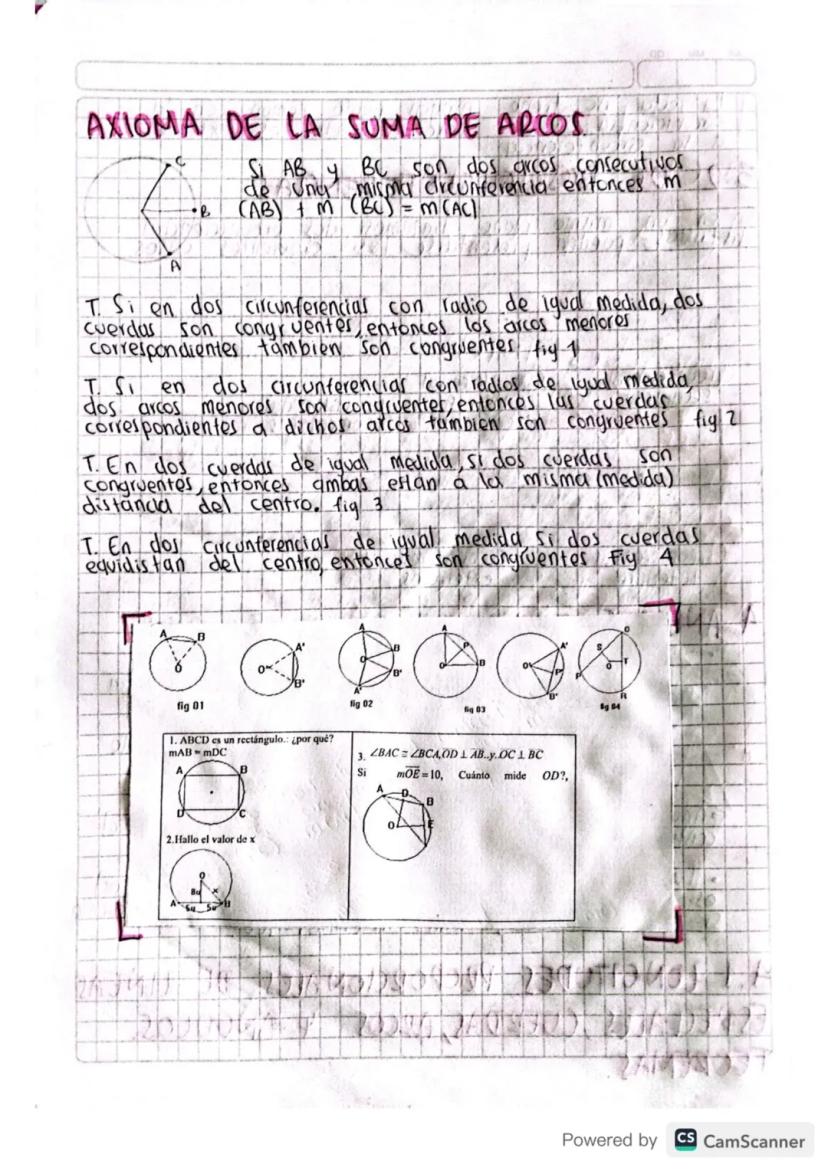 AXIOMA DE LA SUMA DE ARCOS
C
B
A
Si AB y BC son dos arcos consecutivos
de una misma circunferencia entonces m
(AB) + m (BC) = m(AC)
T. Si en dos circunferencias con radio de igual medida, dos
cuerdas son congruentes, entonces los arcos menores
correspondientes tambien son congruentes fig 1
T. Si en dos circunferencias con radios de igual medida,
dos arcos menores son congruentes, entonces las cuerdas
correspondientes a dichos arcos tambien son congruentes fig 2
T. En dos cuerdas de igual medida, si dos cuerdas son
congruentes, entonces ambas están a la misma (medida)
distancia del centro. fig 3
T. En dos circunferencias de igual medida si dos cuerdas
equidistan del centro, entonces son congruentes Fig 4
A B O
A' O B'
A O B B' A'
A P O B
A' O' P' B'
Q S O T P R
fig 01
fig 02
fig 03
fig 04
1. ABCD es un rectángulo.: ¿por qué?
mAB = mDC
A B
D C
2.Hallo el valor de x
O
8u x
A 5u 5u B
3. ∠BAC ≅ ∠BCA,OD ⊥ AB..y.OC ⊥ BC
Si mOE = 10, Cuánto mide OD?,
A D B
O E
Powered by CS CamScanner